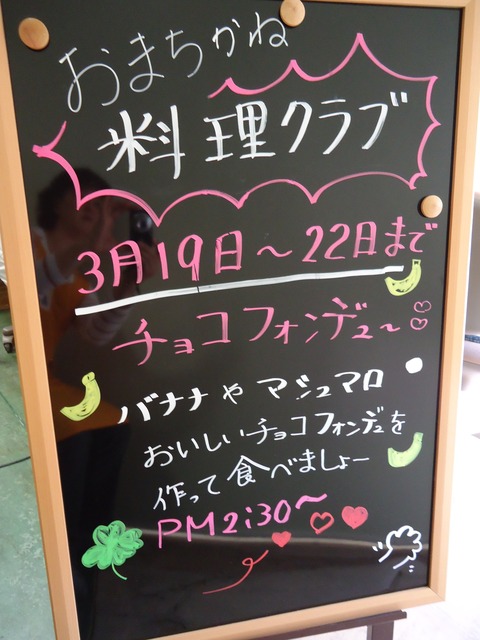 おまちかね
料理クラブ
3月19日～22日まで
チョコフォンデュ～
バナナや マシュマロ
おいしいチョコフォンデュを
作って食べましょー
PM2:30～